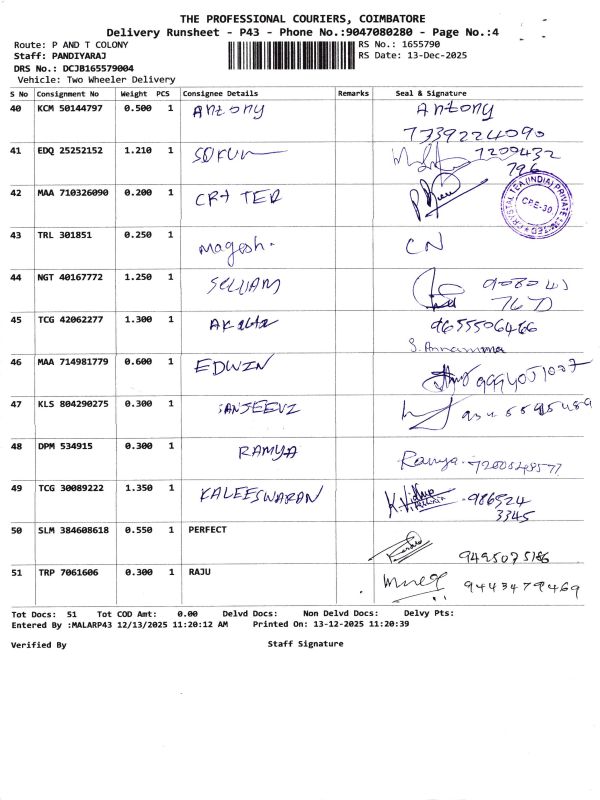 THE PROFESSIONAL COURIERS, COIMBATORE
Delivery Runsheet - P43 - Phone No.:9047080280 - Page No.:4
Route: P AND T COLONY
RS No.: 1655790
Staff: PANDIYARAJ
RS Date: 13-Dec-2025
DRS No.: DCJB165579004
Vehicle: Two Wheeler Delivery
S No Consignment No Weight PCS Consignee Details Remarks Seal & Signature
40 KCM 50144797 0.500 1 Antony Antony
7339224090
41 EDQ 25252152 1.210 1 7200432
796
42 MAA 710326090 0.200 1 TER
CRYSTAL TEA (INDIA) PRIVATE LIMITED
CPE-30
43 TRL 301851 0.250 1 Magesh. CN
44 NGT 40167772 1.250 1 SELVAM
45 TCG 42062277 1.300 1 9655506466
S. Annamma
46 MAA 714981779 0.600 1 EDWIN 9994051007
47 KLS 804290275 0.300 1 SANJEEVI
48 DPM 534915 0.300 1 RAMYA Ramya.
49 TCG 30089222 1.350 1 KALEESWARAN K. Vidhya 986524
3345
50 SLM 384608618 0.550 1 PERFECT 9495075186
51 TRP 7061606 0.300 1 RAJU 9443479469
Tot Docs: 51 Tot COD Amt: 0.00 Delvd Docs: Non Delvd Docs: Delvy Pts:
Entered By :MALARP43 12/13/2025 11:20:12 AM Printed On: 13-12-2025 11:20:39
Verified By Staff Signature